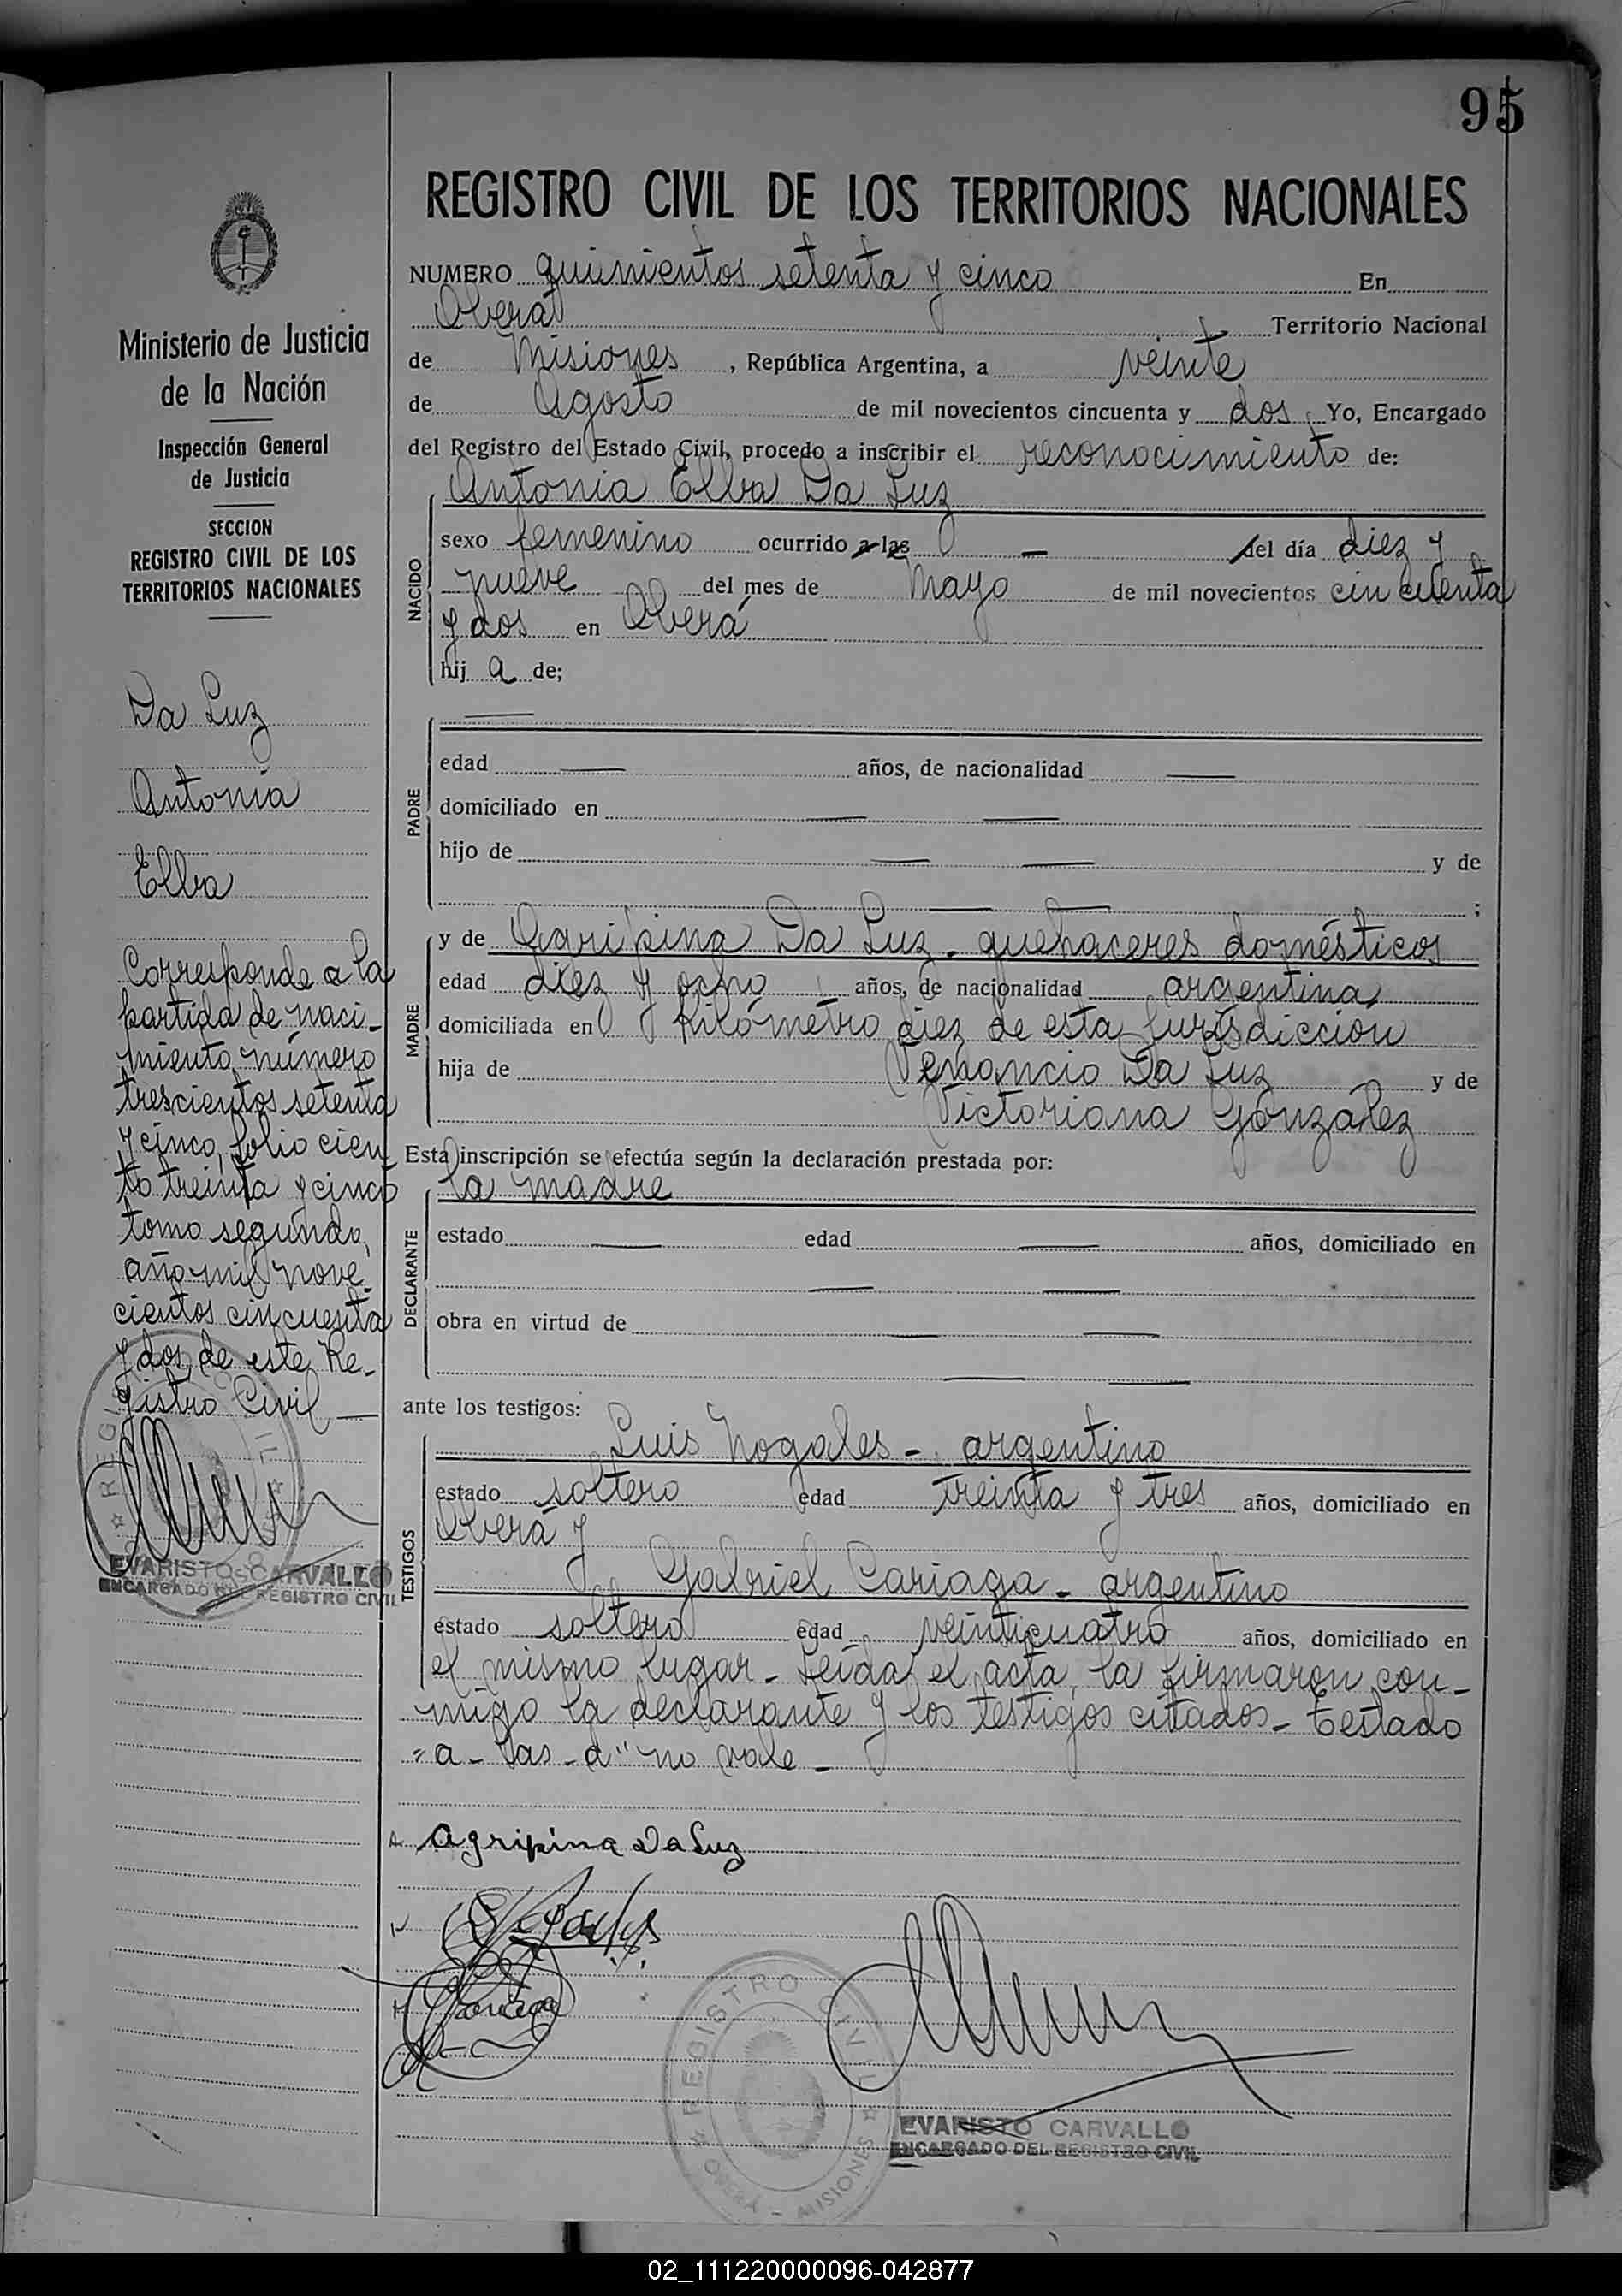 95
REGISTRO CIVIL DE LOS TERRITORIOS NACIONALES
NUMERO quinientos setenta y cinco En
Oberá Territorio Nacional
de Misiones, República Argentina, a veinte
de Agosto de mil novecientos cincuenta y dos, Yo, Encargado
del Registro del Estado Civil, procedo a inscribir el reconocimiento de:
NACIDO
Antonia Elba Da Luz
sexo femenino ocurrido a las — del día diez y
nueve del mes de Mayo de mil novecientos cincuenta
y dos en Oberá
hij a de;
PADRE
—
edad — años, de nacionalidad —
domiciliado en — —
hijo de — — y de
— — ;
MADRE
y de Agripina Da Luz - quehaceres domésticos
edad diez y ocho años, de nacionalidad argentina,
domiciliada en Kilómetro diez de esta jurisdicción
hija de Venancio Da Luz y de
Victoriana González
Esta inscripción se efectúa según la declaración prestada por:
DECLARANTE
la madre
estado — edad — años, domiciliado en
— —
obra en virtud de — —
— —
ante los testigos:
TESTIGOS
Luis Nogales - argentino
estado soltero edad treinta y tres años, domiciliado en
Oberá y
Gabriel Cariaga - argentino
estado soltero edad veinticuatro años, domiciliado en
el mismo lugar - Leída el acta, la firmaron con-
migo la declarante y los testigos citados - Testado
"a - las - d" no vale -
Agripina Da Luz
REGISTRO CIVIL
OBERÁ - MISIONES
EVARISTO CARVALLO
ENCARGADO DEL REGISTRO CIVIL
Ministerio de Justicia
de la Nación
Inspección General
de Justicia
SECCION
REGISTRO CIVIL DE LOS
TERRITORIOS NACIONALES
Da Luz
Antonia
Elba
Corresponde a la
partida de naci-
miento número
trescientos setenta
y cinco, folio cien
to treinta y cinco
tomo segundo,
año mil nove-
cientos cincuenta
y dos, de este Re-
gistro Civil —
EVARISTO CARVALLO
ENCARGADO DEL REGISTRO CIVIL
02_111220000096-042877